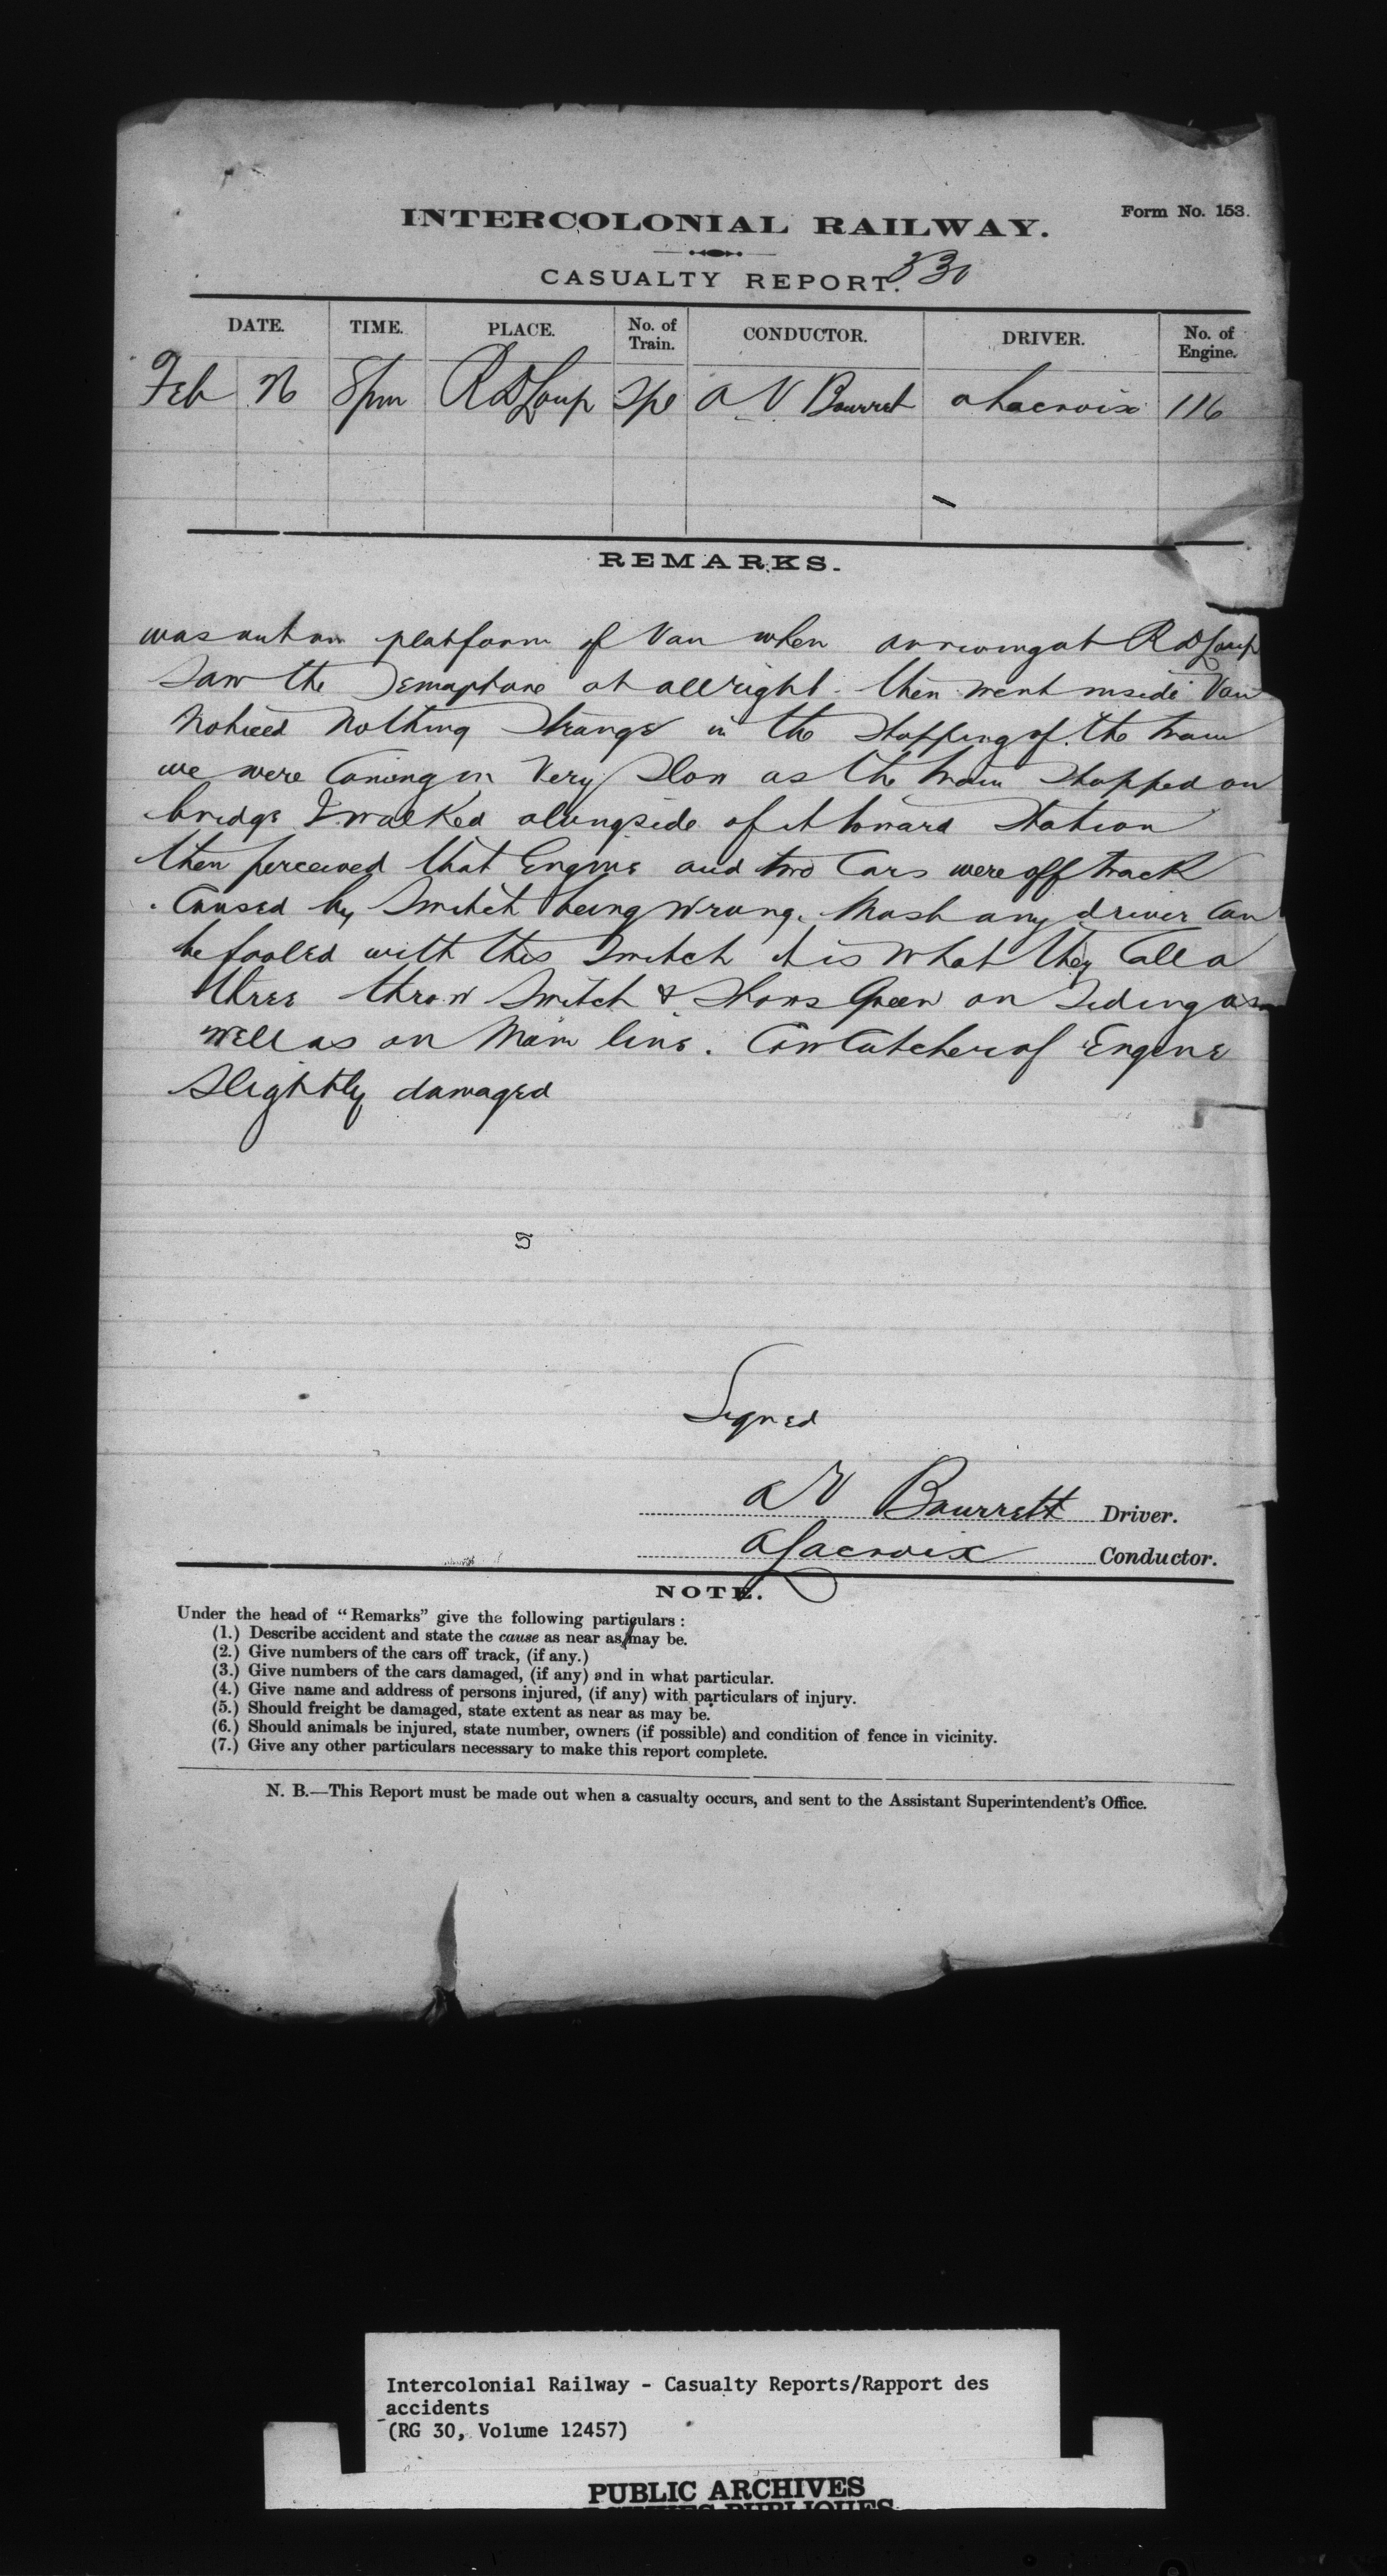 INTERCOLONIAL RAILWAY.
Form No. 153.
CASUALTY REPORT. 330
DATE. TIME. PLACE. No. of Train. CONDUCTOR. DRIVER. No. of Engine.
Feb 26 8pm R D Loup Spe A V Bourret A Lacroix 116
REMARKS.
was out on platform of Van when arriving at R D Loup
Saw the Semaphore at all right. then went inside Van
Noticed Nothing Strange in the Stopping of the train
we were Coming in Very Slow as the train Stopped on
bridge I walked alongside of it toward Station
then perceived that Engine and two Cars were off track
Caused by Switch being Wrong. Most any driver Can
be fooled with this Switch it is What they Call a
three throw Switch & Shows Green on Siding as
Well as on Main line. Cow Catcher of Engine
Slightly damaged
Signed
A V Bourrett Driver.
A Lacroix Conductor.
NOTE.
Under the head of "Remarks" give the following particulars :
(1.) Describe accident and state the cause as near as may be.
(2.) Give numbers of the cars off track, (if any.)
(3.) Give numbers of the cars damaged, (if any) and in what particular.
(4.) Give name and address of persons injured, (if any) with particulars of injury.
(5.) Should freight be damaged, state extent as near as may be.
(6.) Should animals be injured, state number, owners (if possible) and condition of fence in vicinity.
(7.) Give any other particulars necessary to make this report complete.
N. B.—This Report must be made out when a casualty occurs, and sent to the Assistant Superintendent's Office.
Intercolonial Railway - Casualty Reports/Rapport des
accidents
(RG 30, Volume 12457)
PUBLIC ARCHIVES